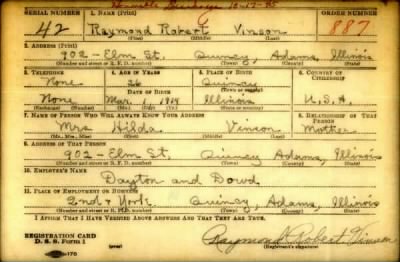 Honorable Discharge 10-17-45
SERIAL NUMBER 1. NAME (Print) ORDER NUMBER
42 Raymond Robert Vinson 887
(First) (Middle) (Last)
2. ADDRESS (Print)
902 - Elm St. Quincy, Adams, Illinois
(Number and street or R. F. D. number) (Town) (County) (State)
3. TELEPHONE 4. AGE IN YEARS 5. PLACE OF BIRTH 6. COUNTRY OF CITIZENSHIP
None 26 Quincy
DATE OF BIRTH (Town or county)
None Mar. 1914 Illinois U.S.A.
(Exchange) (Number) (Mo.) (Day) (Yr.) (State or country)
7. NAME OF PERSON WHO WILL ALWAYS KNOW YOUR ADDRESS 8. RELATIONSHIP OF THAT PERSON
Mrs Hilda Vinson Mother
(Mr., Mrs., Miss) (First) (Middle) (Last)
9. ADDRESS OF THAT PERSON
902 - Elm St. Quincy Adams, Illinois
(Number and street or R. F. D. number) (Town) (County) (State)
10. EMPLOYER'S NAME
Dayton and Dowd
11. PLACE OF EMPLOYMENT OR BUSINESS
2nd & York. Quincy, Adams, Illinois
(Number and street or R. F. D. number) (Town) (County) (State)
I AFFIRM THAT I HAVE VERIFIED ABOVE ANSWERS AND THAT THEY ARE TRUE.
REGISTRATION CARD
D. S. S. Form 1 Raymond Robert Vinson
(Registrant's signature)